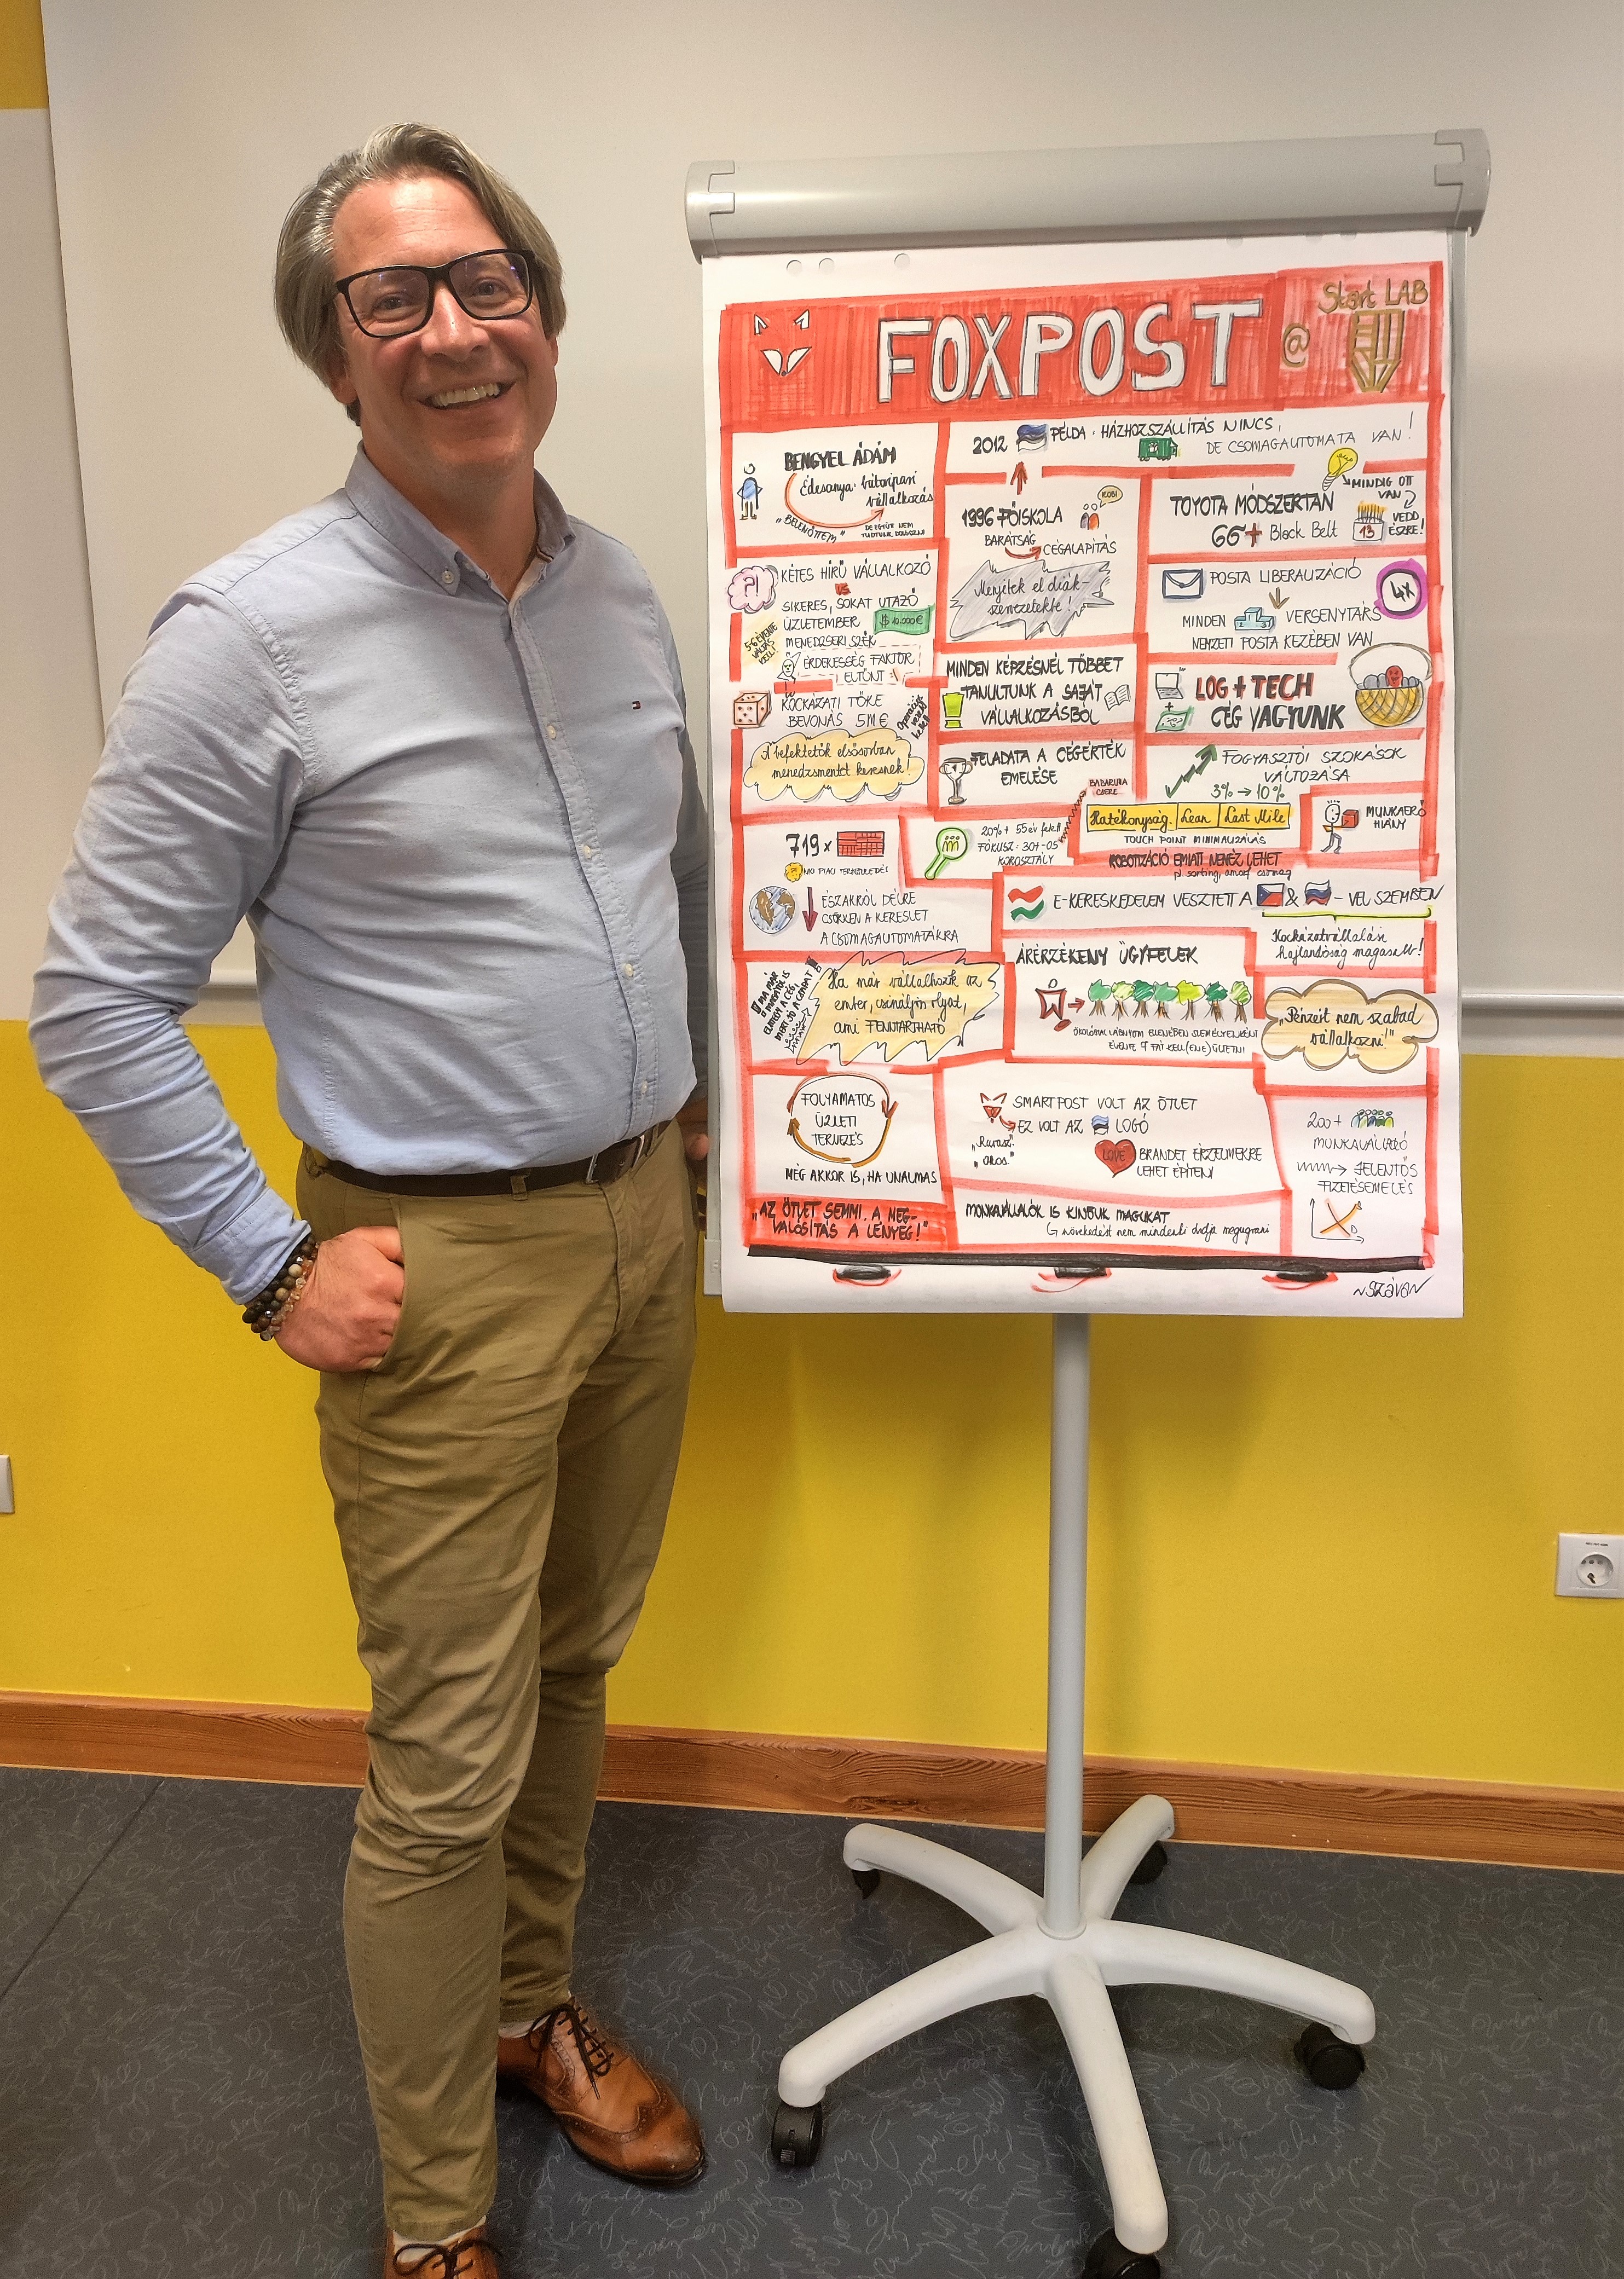 Start LAB
FOXPOST @
BENGYEL ÁDÁM
Édesanya: bútoripari
vállalkozás
"BELENŐTTEM"
DE EGYÜTT NEM
TUDTUNK DOLGOZNI
2012
PÉLDA: HÁZHOZSZÁLLÍTÁS NINCS,
DE CSOMAGAUTOMATA VAN!
1996 FŐISKOLA
BARÁTSÁG
CÉGALAPÍTÁS
Menjetek el diák-
szervezetekbe!
TOYOTA MÓDSZERTAN
66+ Black Belt
MINDIG OTT
VAN
VEDD
ÉSZRE!
13
?!
KÉTES HÍRŰ VÁLLALKOZÓ
VS
SIKERES, SOKAT UTAZÓ
ÜZLETEMBER
$ 10.000€
MENEDZSERI SZÉK
5-6 ÉVENTE
VÁLTÁS
KELL!
ÉRDEKESSÉG FAKTOR
ELTŰNT
POSTA LIBERALIZÁCIÓ
4X
MINDEN VERSENYTÁRS
NEMZETI POSTA KEZÉBEN VAN
MINDEN KÉPZÉSNÉL TÖBBET
TANULTUNK A SAJÁT
VÁLLALKOZÁSBÓL
LOG + TECH
CÉG VAGYUNK
KOCKÁZATI TŐKE
BEVONÁS 5M€
A befektetők elsősorban
menedzsmentet keresnek!
FELADATA A CÉGÉRTÉK
EMELÉSE
FOGYASZTÓI SZOKÁSOK
VÁLTOZÁSA
3% → 10%
BABARUHA
CSERE
Hatékonyság Lean Last Mile
TOUCH POINT MINIMALIZÁLÁS
MUNKAERŐ
HIÁNY
ROBOTIZÁCIÓ EMIATT NEHÉZ LEHET
pl. sorting, amorf csomag
719x
NO PIACI TERMÉK
20%+ 55 év felett
FÓKUSZ: 30+-05
KOROSZTÁLY
ÉSZAKRÓL DÉLRE
CSÖKKEN A KERESLET
A CSOMAGAUTOMATÁKRA
E-KERESKEDELEM VESZTETT A & -VEL SZEMBEN
Kockázatvállalási
hajlandóság magasabb!
Ha már vállalkozik az
ember, csináljon olyat,
ami FENNTARTHATÓ
ÁRÉRZÉKENY ÜGYFELEK
ÖKOLÓGIAI LÁBNYOM ELLENÉBEN SZEMÉLYENKÉNT
ÉVENTE 7 FÁT KELL(ENE) ÜLTETNI
"Pénzért nem szabad
vállalkozni!"
FOLYAMATOS
ÜZLETI
TERVEZÉS
MÉG AKKOR IS, HA UNALMAS
SMARTPOST VOLT AZ ÖTLET
EZ VOLT AZ LOGÓ
"Ravasz"
"Okos"
LOVE
BRANDET ÉRZELMEKRE
LEHET ÉPÍTENI
200+
MUNKAVÁLLALÓ
JELENTŐS
FIZETÉSEMELÉS
"AZ ÖTLET SEMMI, A MEG-
VALÓSÍTÁS A LÉNYEG!"
MUNKAVÁLLALÓK IS KINÖVIK MAGUKAT
növekedést nem mindenki tudja megugrani